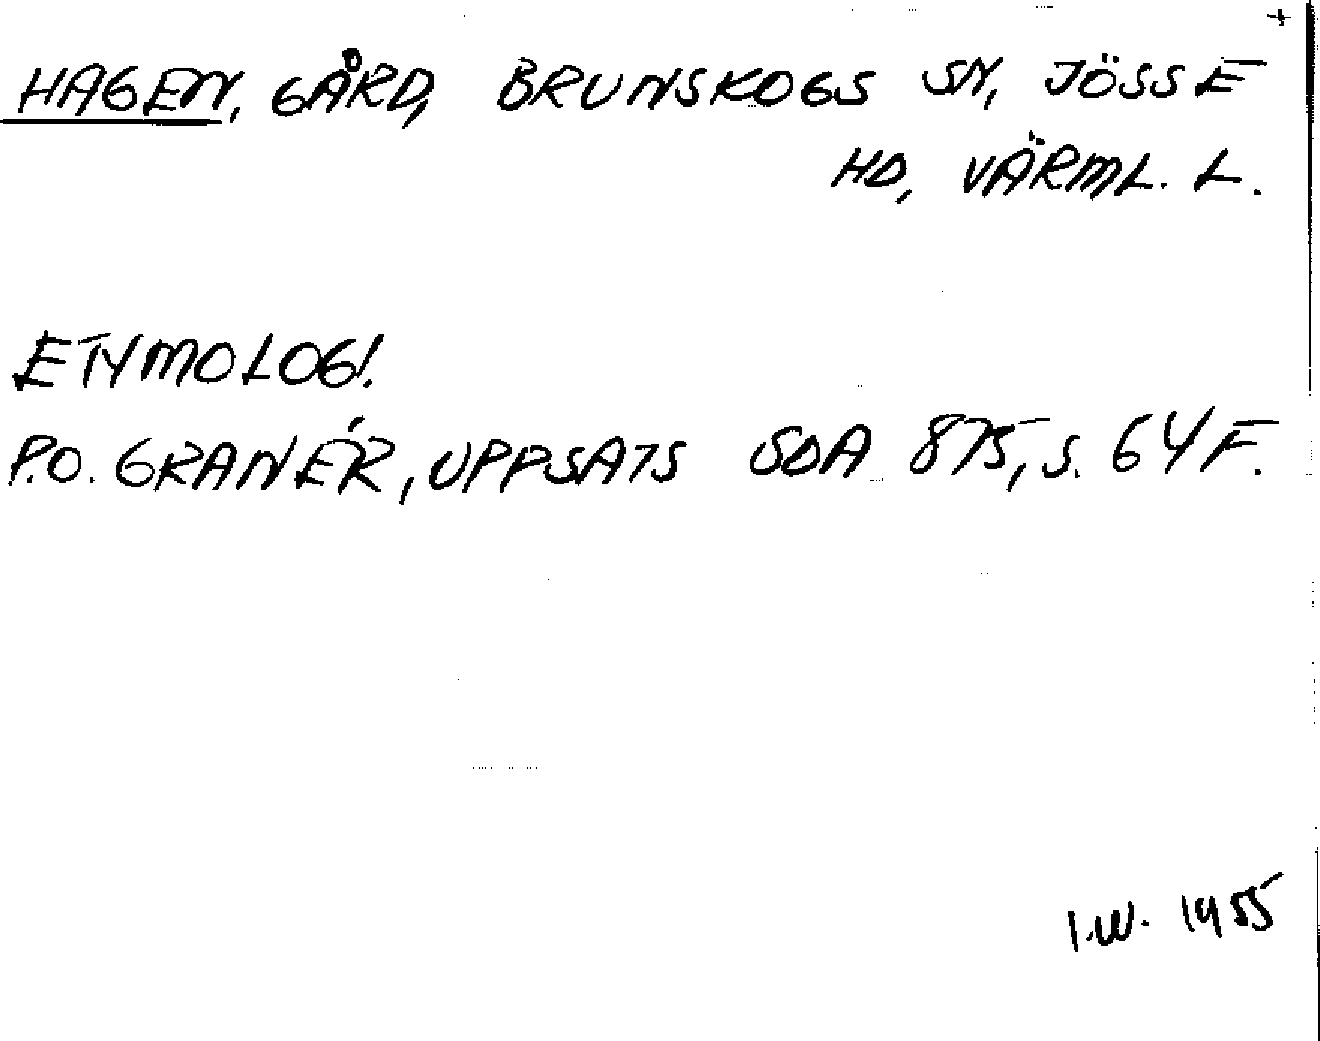 +
HAGEN, GÅRD, BRUNSKOGS SN, JÖSSE
HD, VÄRML. L.
ETYMOLOG!
P.O. GRANÉR, UPPSATS SOA 875, S. 64 F.
I.W. 1955